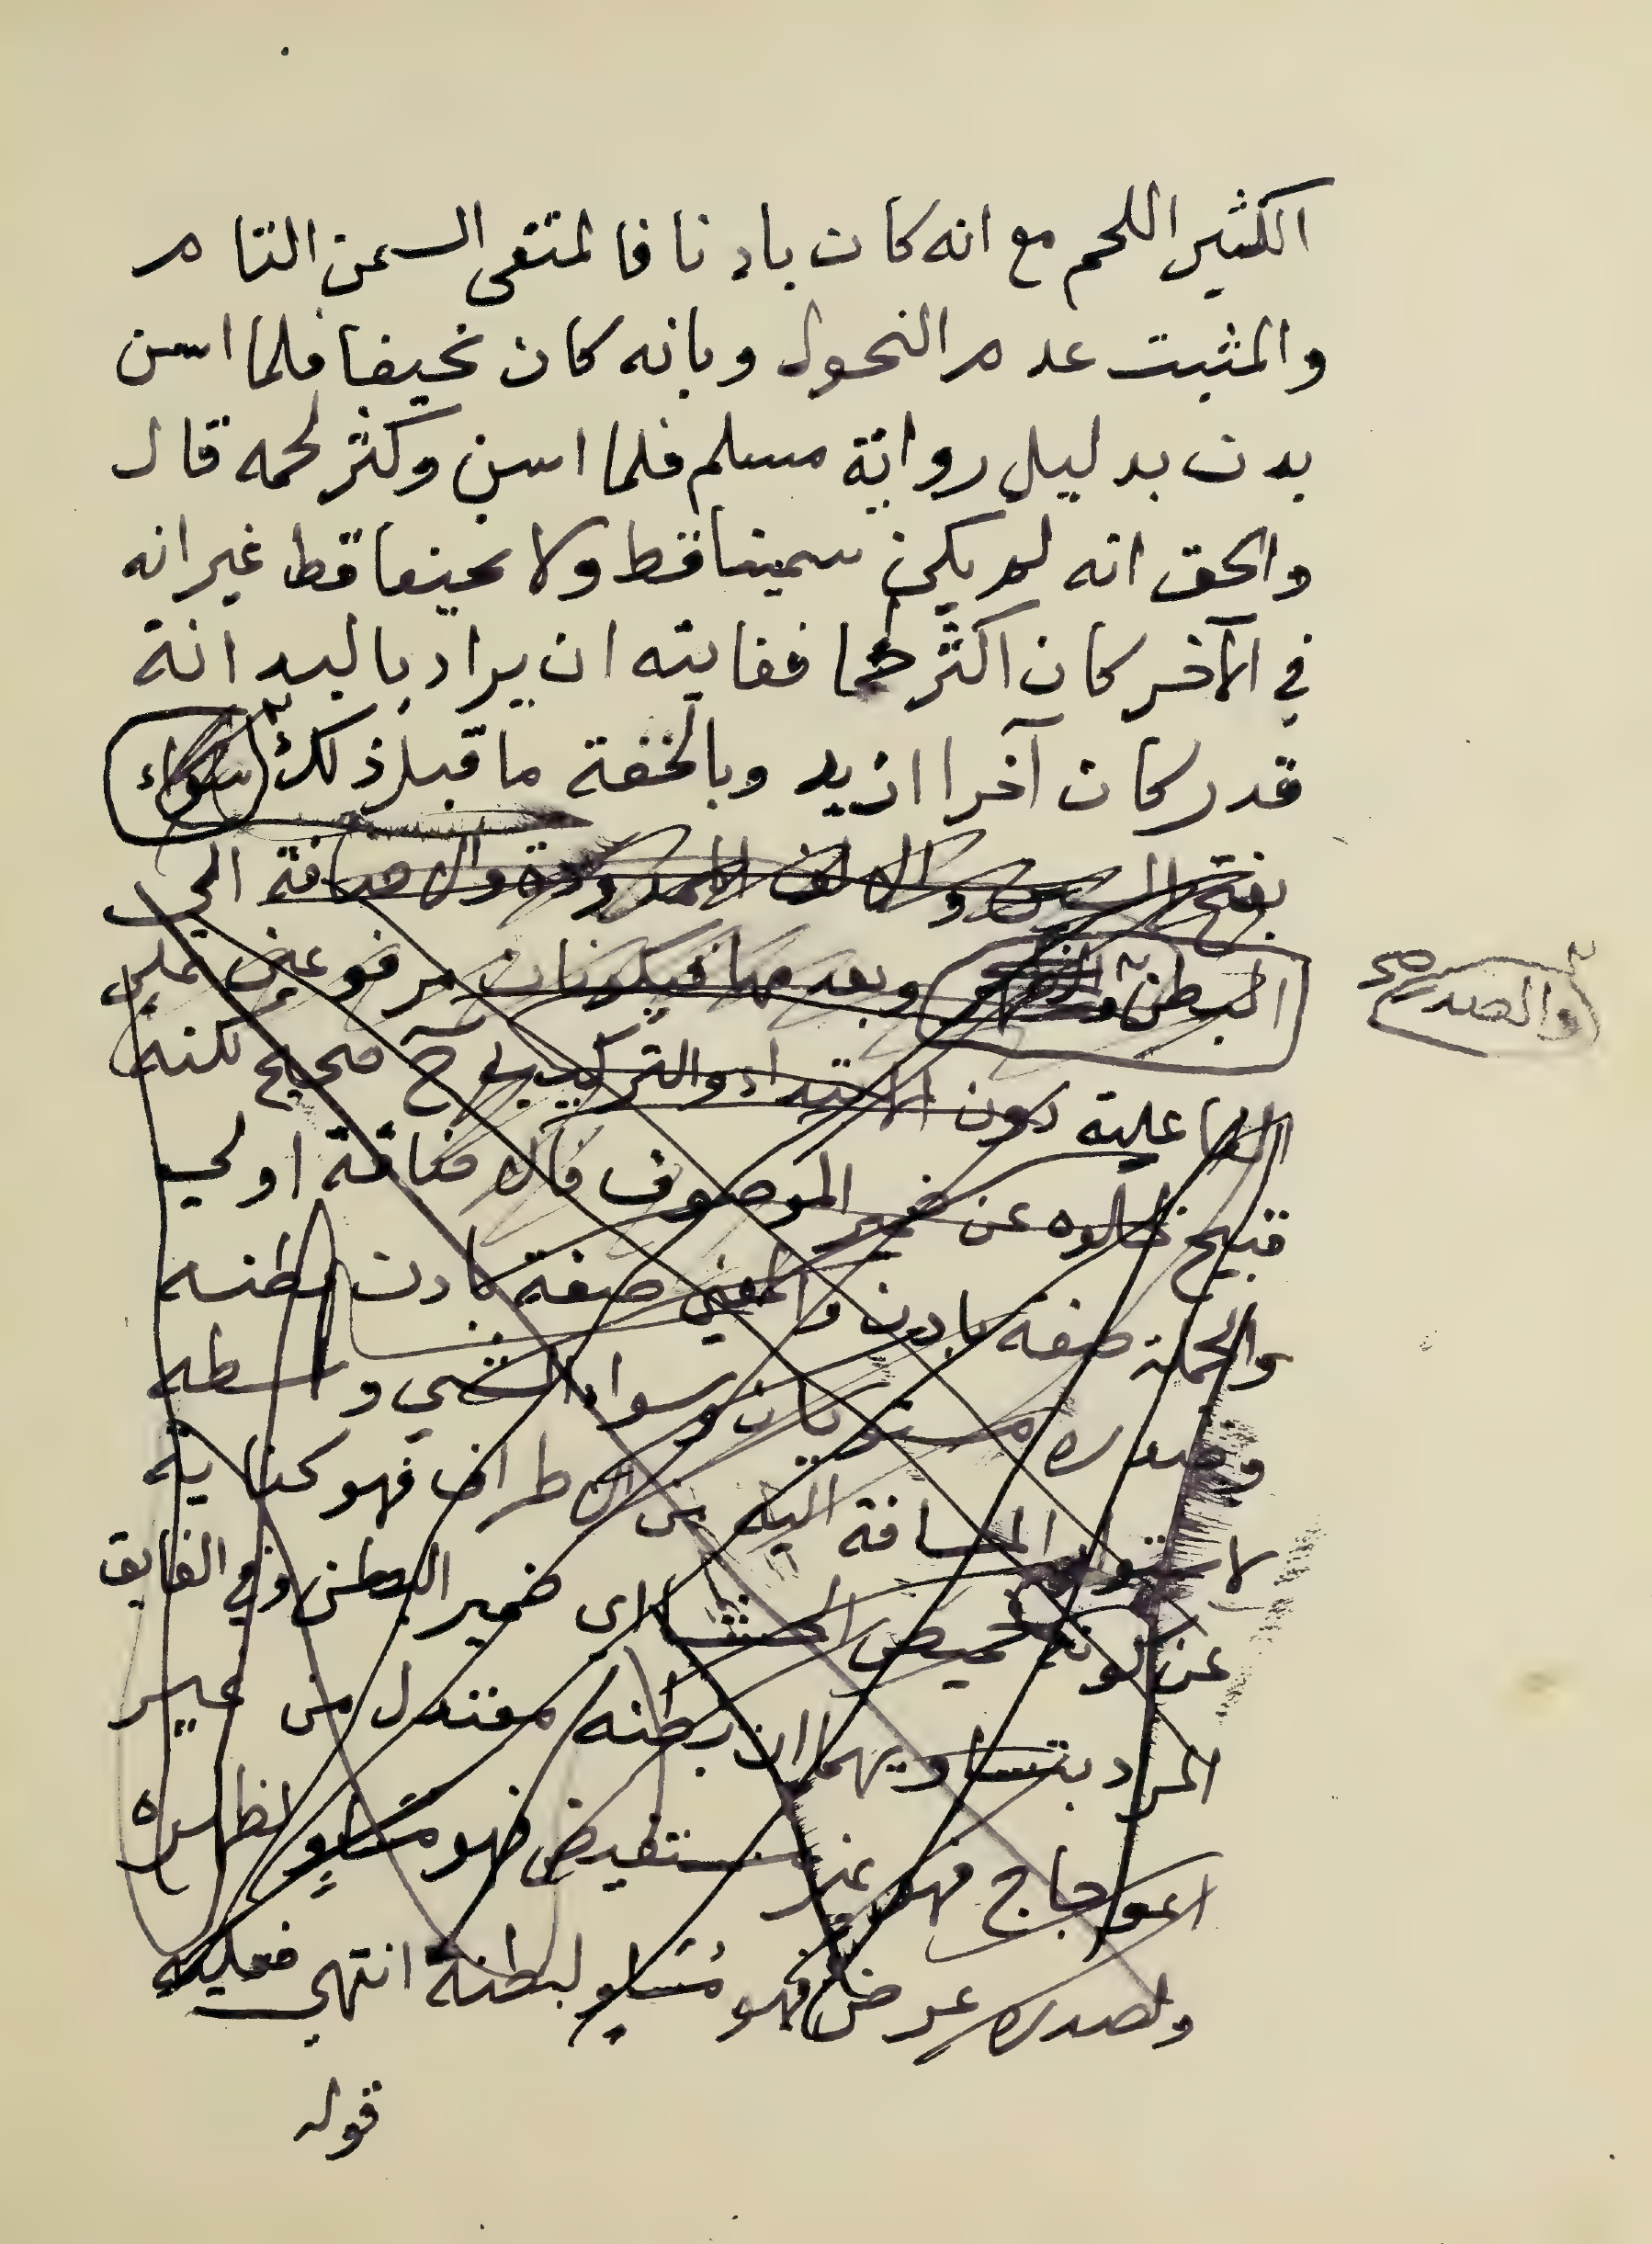 الكثير اللحم مع انه كان بادنا فالمنتفى السمن التام
والمثبت عدم النحول وبانه كان نحيفا فلما اسن
بدن بدليل رواية مسلم فلما اسن وكثر لحمه قال
والحق انه لم يكن سمينا قط ولا نحيفا قط غير انه
في الآخر كان اكثر لحما فغايته ان يراد بالبدانة
قدر كان آخرا ازيد وبالخفة ما قبل ذلك سواء
بفتح السين والالف الممدودة والاضافة الى
البطن وبعدمها فيكونان مرفوعين على
والصدر صح
الفاعلية دون الابتداء والتركيب ح صحيح لكنه
قبيح لخلوه عن ضمير الموصوف فالاضافة اولى
والجملة صفة بادن والمعنى صفة بادن بطنه
وصدره مستويان وسواء الشي وسطه
لاستواء المسافة اليه من الاطراف فهو كناية
عن كونه خميص الحشا اى ضمير البطن وفي الفايق
المراد بتساويهما ان بطنه معتدل من غير
اعوجاج فهو غير مستفيض فهو مساو لظهره
ولصدره عرض فهو مساو لبطنه انتهى فعليه
قوله